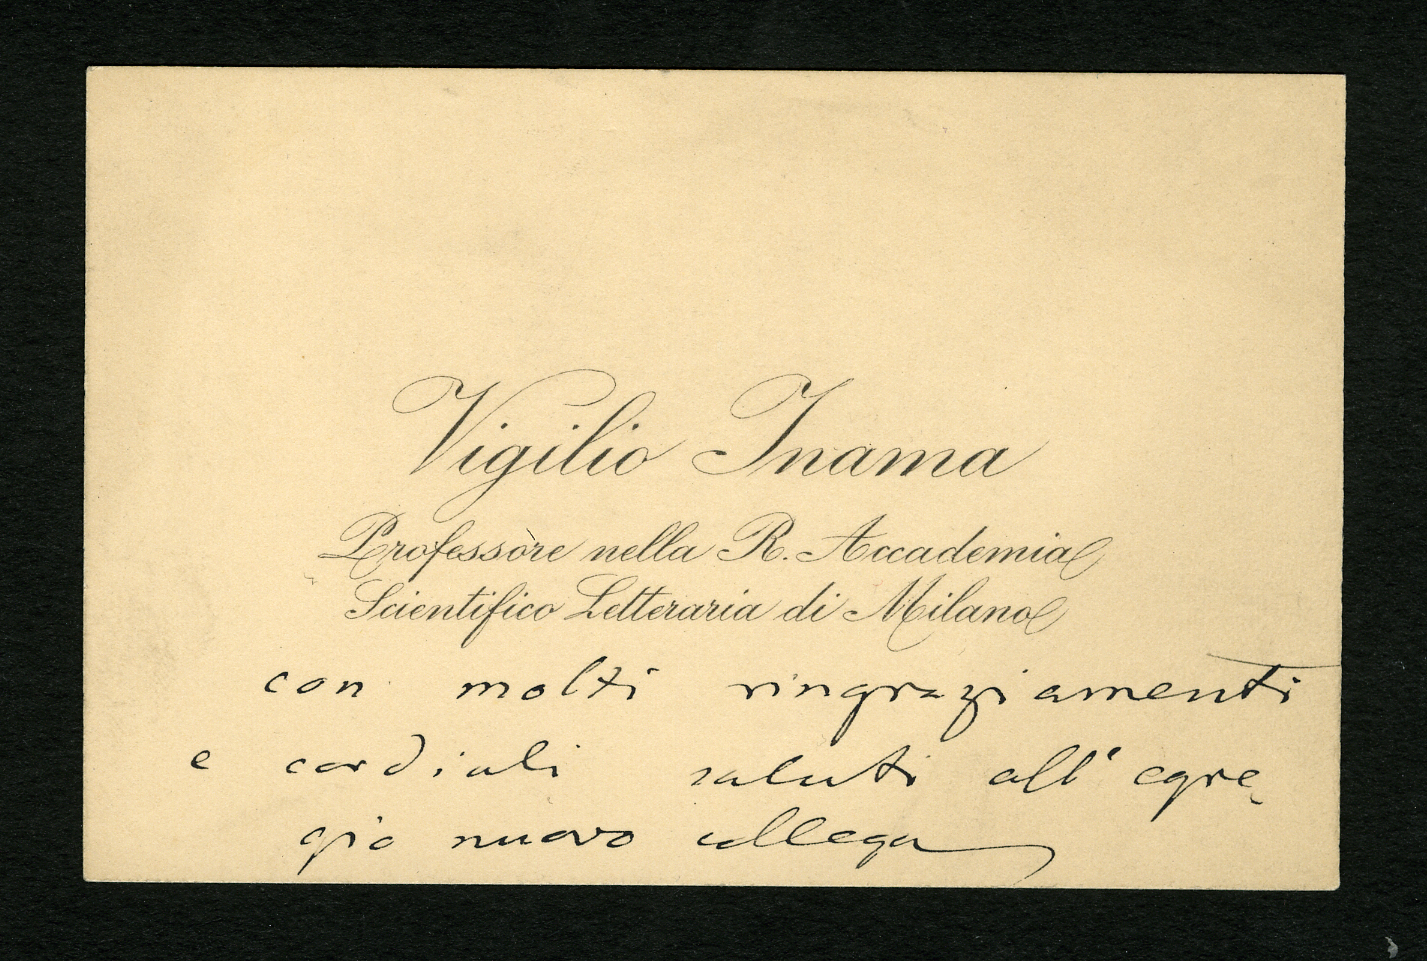 Vigilio Inama
Professore nella R. Accademia
Scientifico Letteraria di Milano
con molti ringraziamenti
e cordiali saluti all' egre-
gio nuovo collega